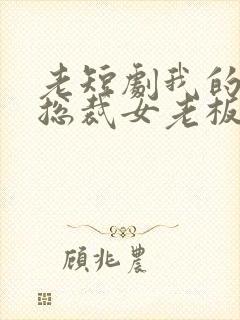 老短劇我的
总裁女老板
顾兆農